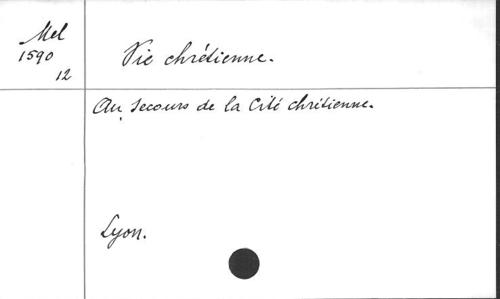 Mel
1590
12
Vie chrétienne.
Au secours de la Cité chrétienne.
Lyon.